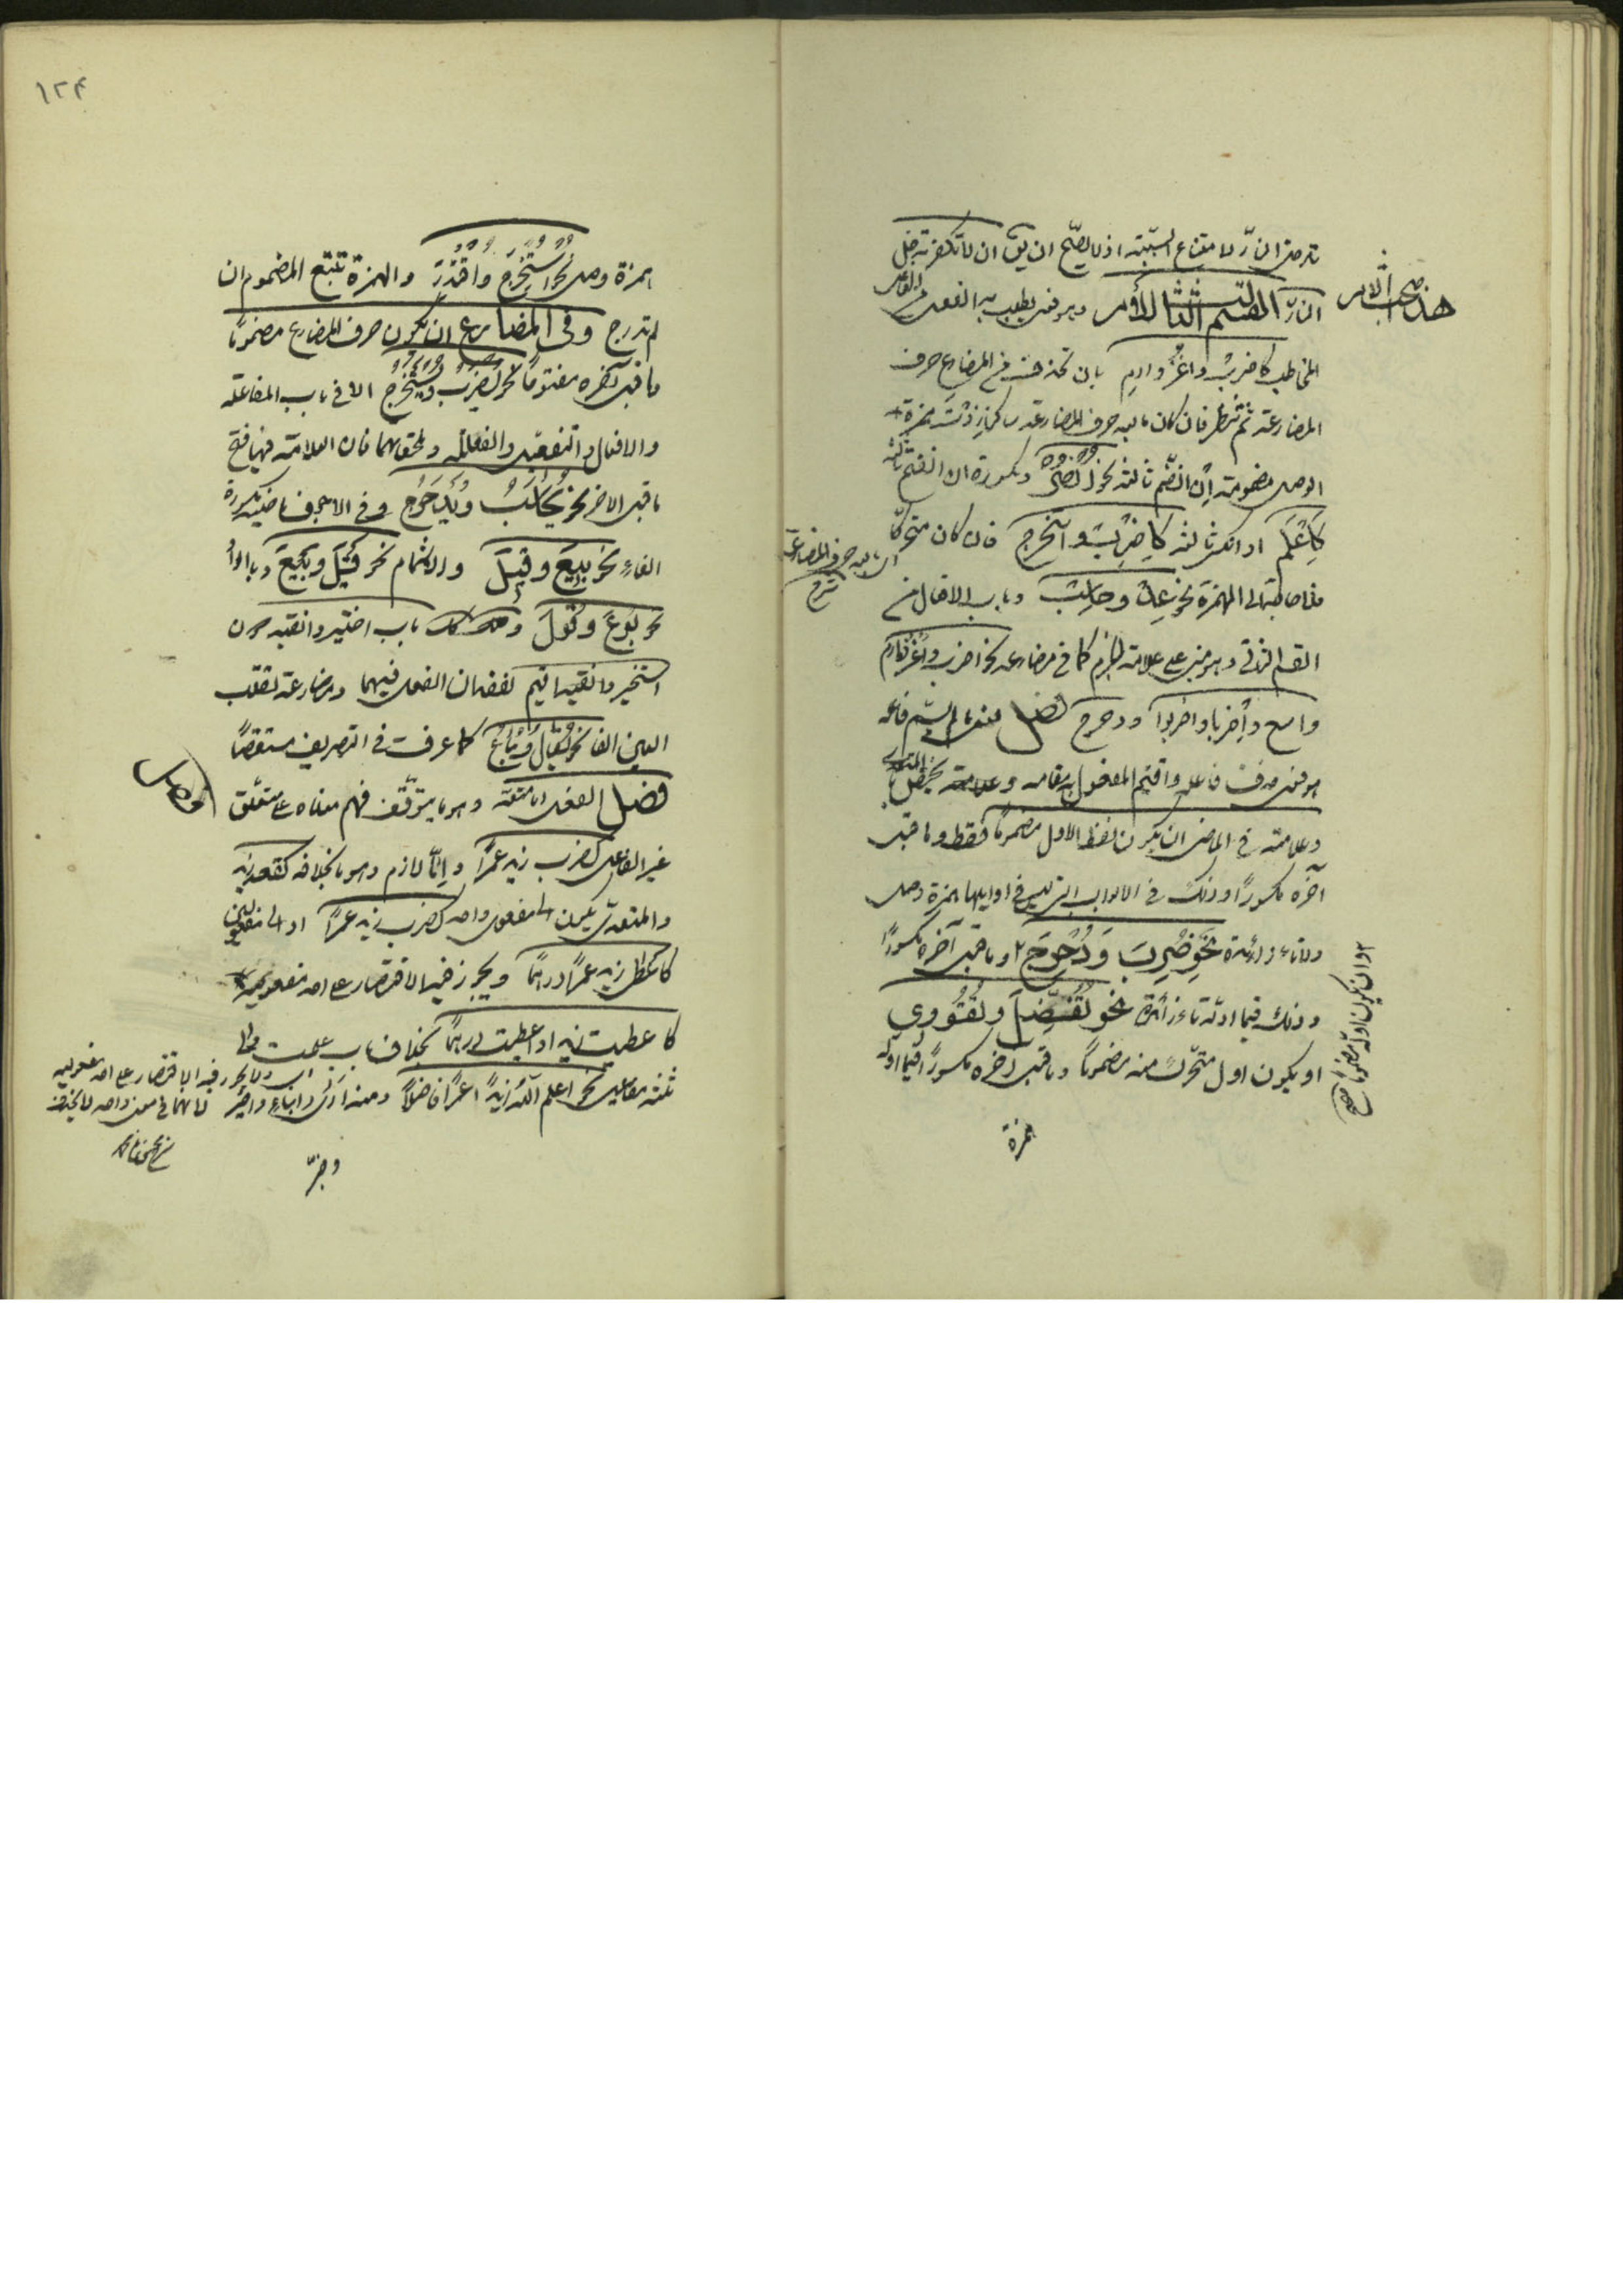 تدخل النار لامتناع السببية اذ لا يصح ان يق ان لا تكفر تدخل
النار القسم الثالث الأمر وهو فعل يطلب به الفعل من الفاعل
هذا بحث الامر
المخاطب كاضرب واغز وارم بان تحذف من المضارع حرف
المضارعة ثم تنظر فان كان ما بعد حرف المضارعة ساكنا زدت همزة
الوصل مضمومة ان انضم ثالثه نحو انصر ومكسورة ان انفتح ثالثه
كاعلم او انكسر ثالثه كاضرب واستخرج فان كان متحركا
اى ما بعد حرف المضارعة
شرح
فلا حاجة الى الهمزة نحو عد وحاسب وباب الافعال من
القسم الثانى وهو مبنى على علامة الجزم كما فى مضارعه نحو اضرب واغز وارم
واسع واضربا واضربوا ودحرج فصل فعل ما لم يسم فاعله
هو فعل حذف فاعله واقيم المفعول به مقامه وعلامة يختص بالمتعدى
وعلامته فى الماضى ان يكون لفظ الاول مضموما فقط وما قبل
آخره مكسورا وذلك فى الابواب التى ليس فى اوايلها همزة وصل
ولا تاء زائدة نحو ضرب ودحرج ٢ وما قبل آخره مكسورا
٢ وان يكون اوله مضموما صح
وذلك فيما اوله تاء زائدة نحو تفضل وتقووي
او يكون اول متحرك منه مضموما وما قبل آخره مكسورا فيما اوله
همزة
١٢٤
همزة وصل نحو استخرج واقتدر والهمزة تتبع المضموم ان
لم تدرج وفى المضارع ان يكون حرف المضارع مضموما
ما قبل آخره مفتوحا نحو يضرب ويستخرج الا فى باب المفاعلة
والافعال والتفعيل والفعللة وملحقاتهما فان العلامة فيها فتح
ما قبل الاخر نحو يحاسب ويدحرج وفى الاجوف ماضيه مكسورة
الفاء نحو بيع وقيل والاشمام نحو قيل وبيع وبالواو
نحو بوع وقول وكذلك باب اختير وانقيد دون
استخير واقيم لفقدان الفعل فيهما ومضارعه تقلب
العين الفا نحو يقال ويباع كما عرفت فى التصريف مستقصا
فصل الفعل اما متعد وهو ما يتوقف فهم معناه على متعلق
غير الفاعل كضرب زيد عمرا وإما لازم وهو ما بخلافه كقعد زيد
والمتعدى يكون الى مفعول واحد كضرب زيد عمرا او الى مفعولين
كاعطى زيد عمرا درهما ويجوز فيه الاقتصار على احد مفعوليه
كاعطيت زيدا او اعطيت درهما بخلاف باب علمت والى
ثلثة مفاعيل نحو اعلم الله زيدا عمرا فاضلا ومنه ارى وانباء واخبر
اى ولا يجوز فيه الاقتصار على احد مفعوليه
لانهما فى معنى واحد فلا يحذف
وخبر